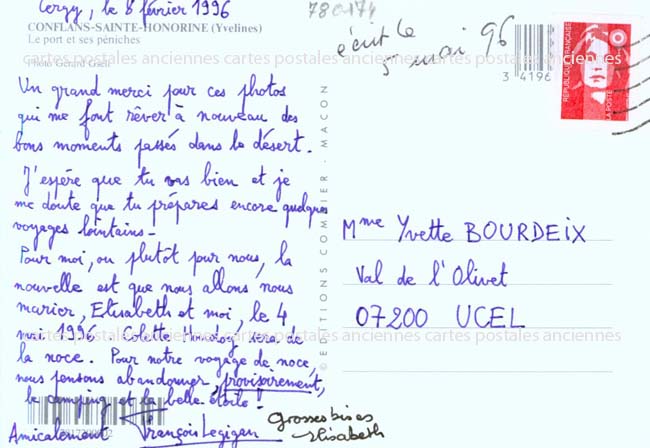 Cergy, le 8 février 1996
CONFLANS-SAINTE-HONORINE (Yvelines)
Le port et ses péniches
Photo Gérard
780174
écrit le
5 mai 96
3 4196
RÉPUBLIQUE FRANÇAISE
LA POSTE
Un grand merci pour ces photos
qui me font rêver à nouveau des
bons moments passés dans le désert.
J'espère que tu vas bien et je
me doute que tu prépares encore quelques
voyages lointains.
Pour moi, ou plutôt pour nous, la
nouvelle est que nous allons nous
marier, Elisabeth et moi, le 4
mai 1996. Colette sera de
la noce. Pour notre voyage de noce,
nous pensons abandonner, provisoirement,
le camping et la belle étoile !
Amicalement François Legigan
grosses bises
Elisabeth
© EDITIONS COMBIER - MACON
Mme Yvette BOURDEIX
Val de l'Olivet
07200 UCEL
cartes postales anciennes cartes postales anciennes cartes postales anciennes
cartes postales anciennes cartes postales anciennes cartes postales anciennes